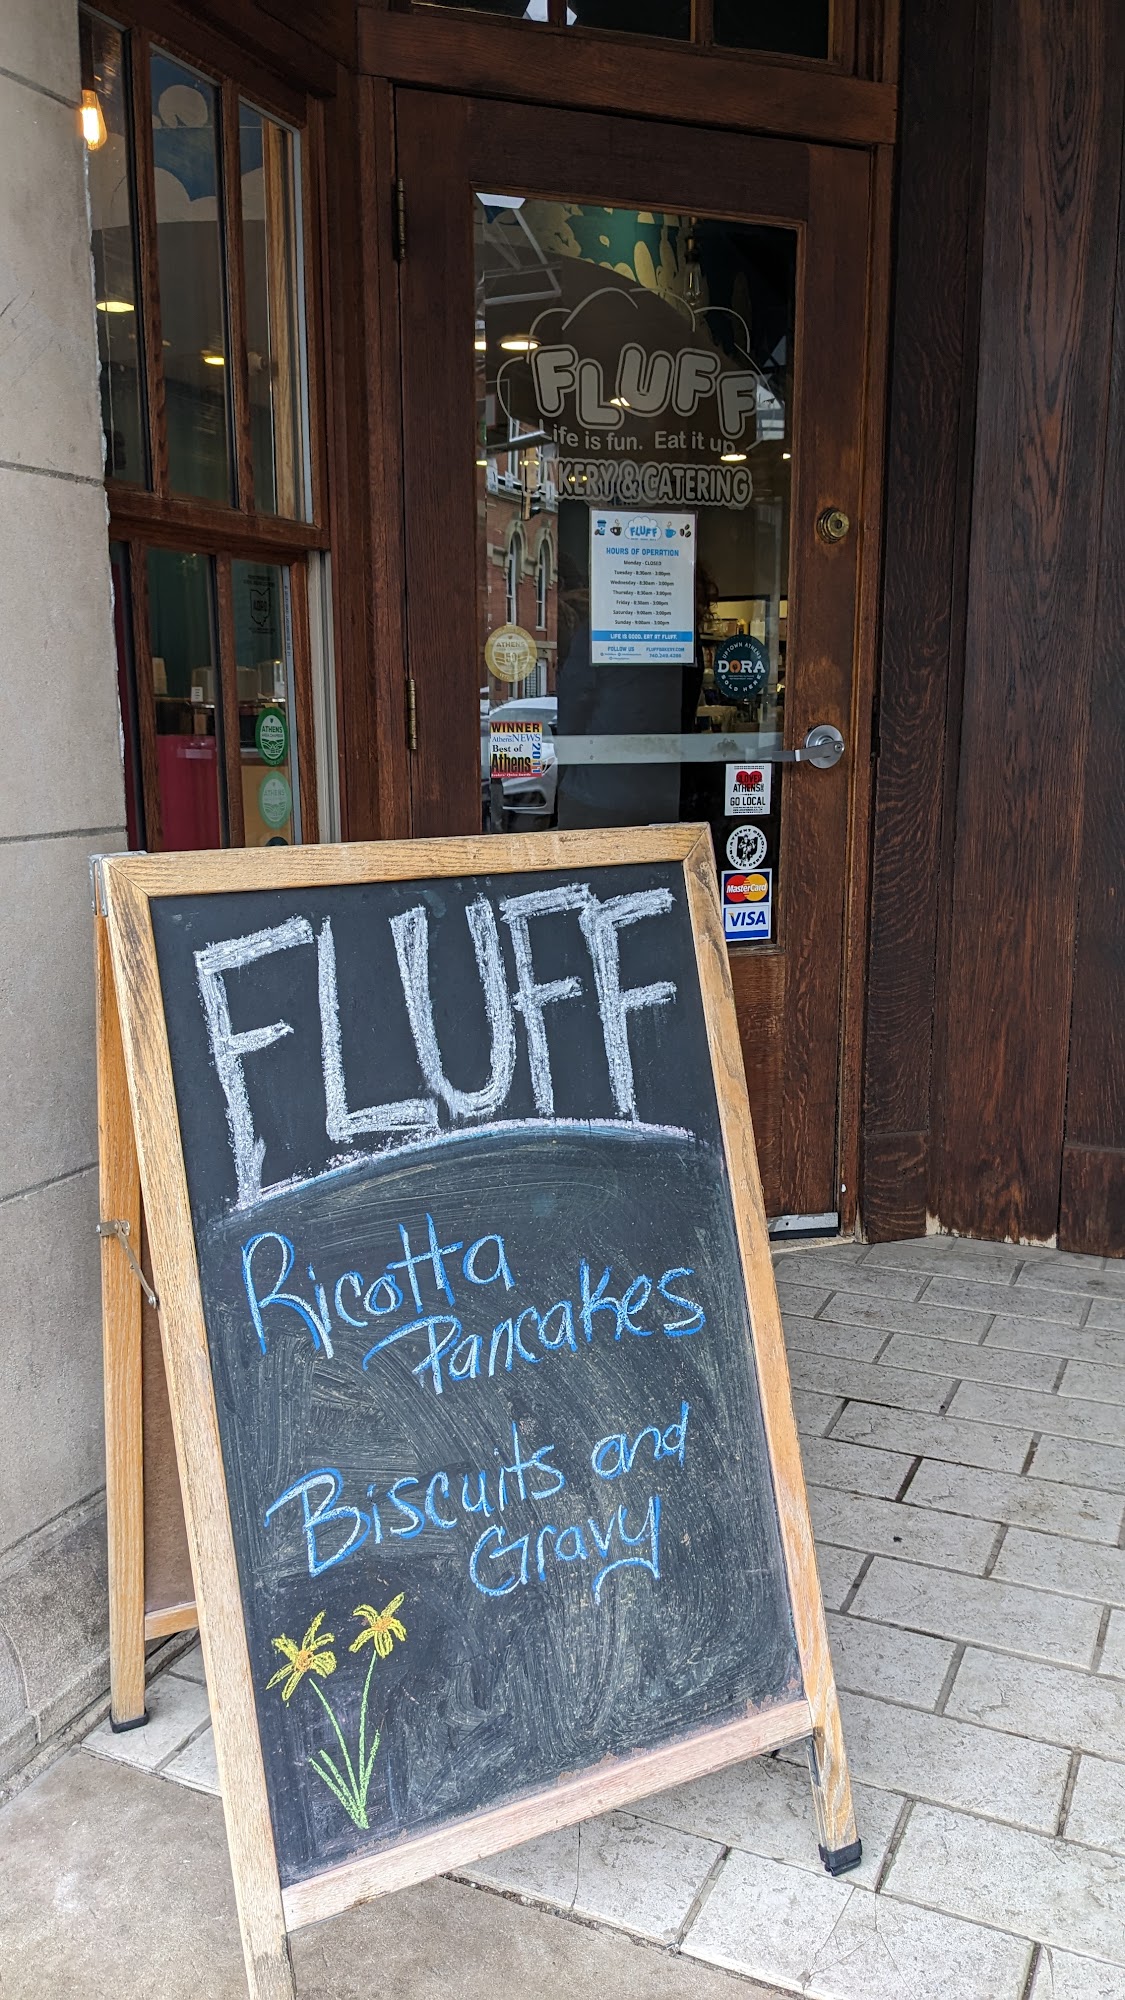 FLUFF
Life is fun. Eat it up.
BAKERY & CATERING
FLUFF
HOURS OF OPERATION
Monday - CLOSED
Tuesday - 8:30am - 3:00pm
Wednesday - 8:30am - 3:00pm
Thursday - 8:30am - 3:00pm
Friday - 8:30am - 3:00pm
Saturday - 9:00am - 3:00pm
Sunday - 9:00am - 3:00pm
LIFE IS GOOD. EAT AT FLUFF.
FOLLOW US
FLUFFBAKERY.COM
740.249.4286
ATHENS
UPTOWN ATHENS
DORA
SOLD HERE
ATHENS
WINNER
The Athens NEWS
Best of
Athens
2011
Readers' Choice Awards
ATHENS
GO LOCAL
MasterCard
VISA
FLUFF
Ricotta
Pancakes
Biscuits and
Gravy